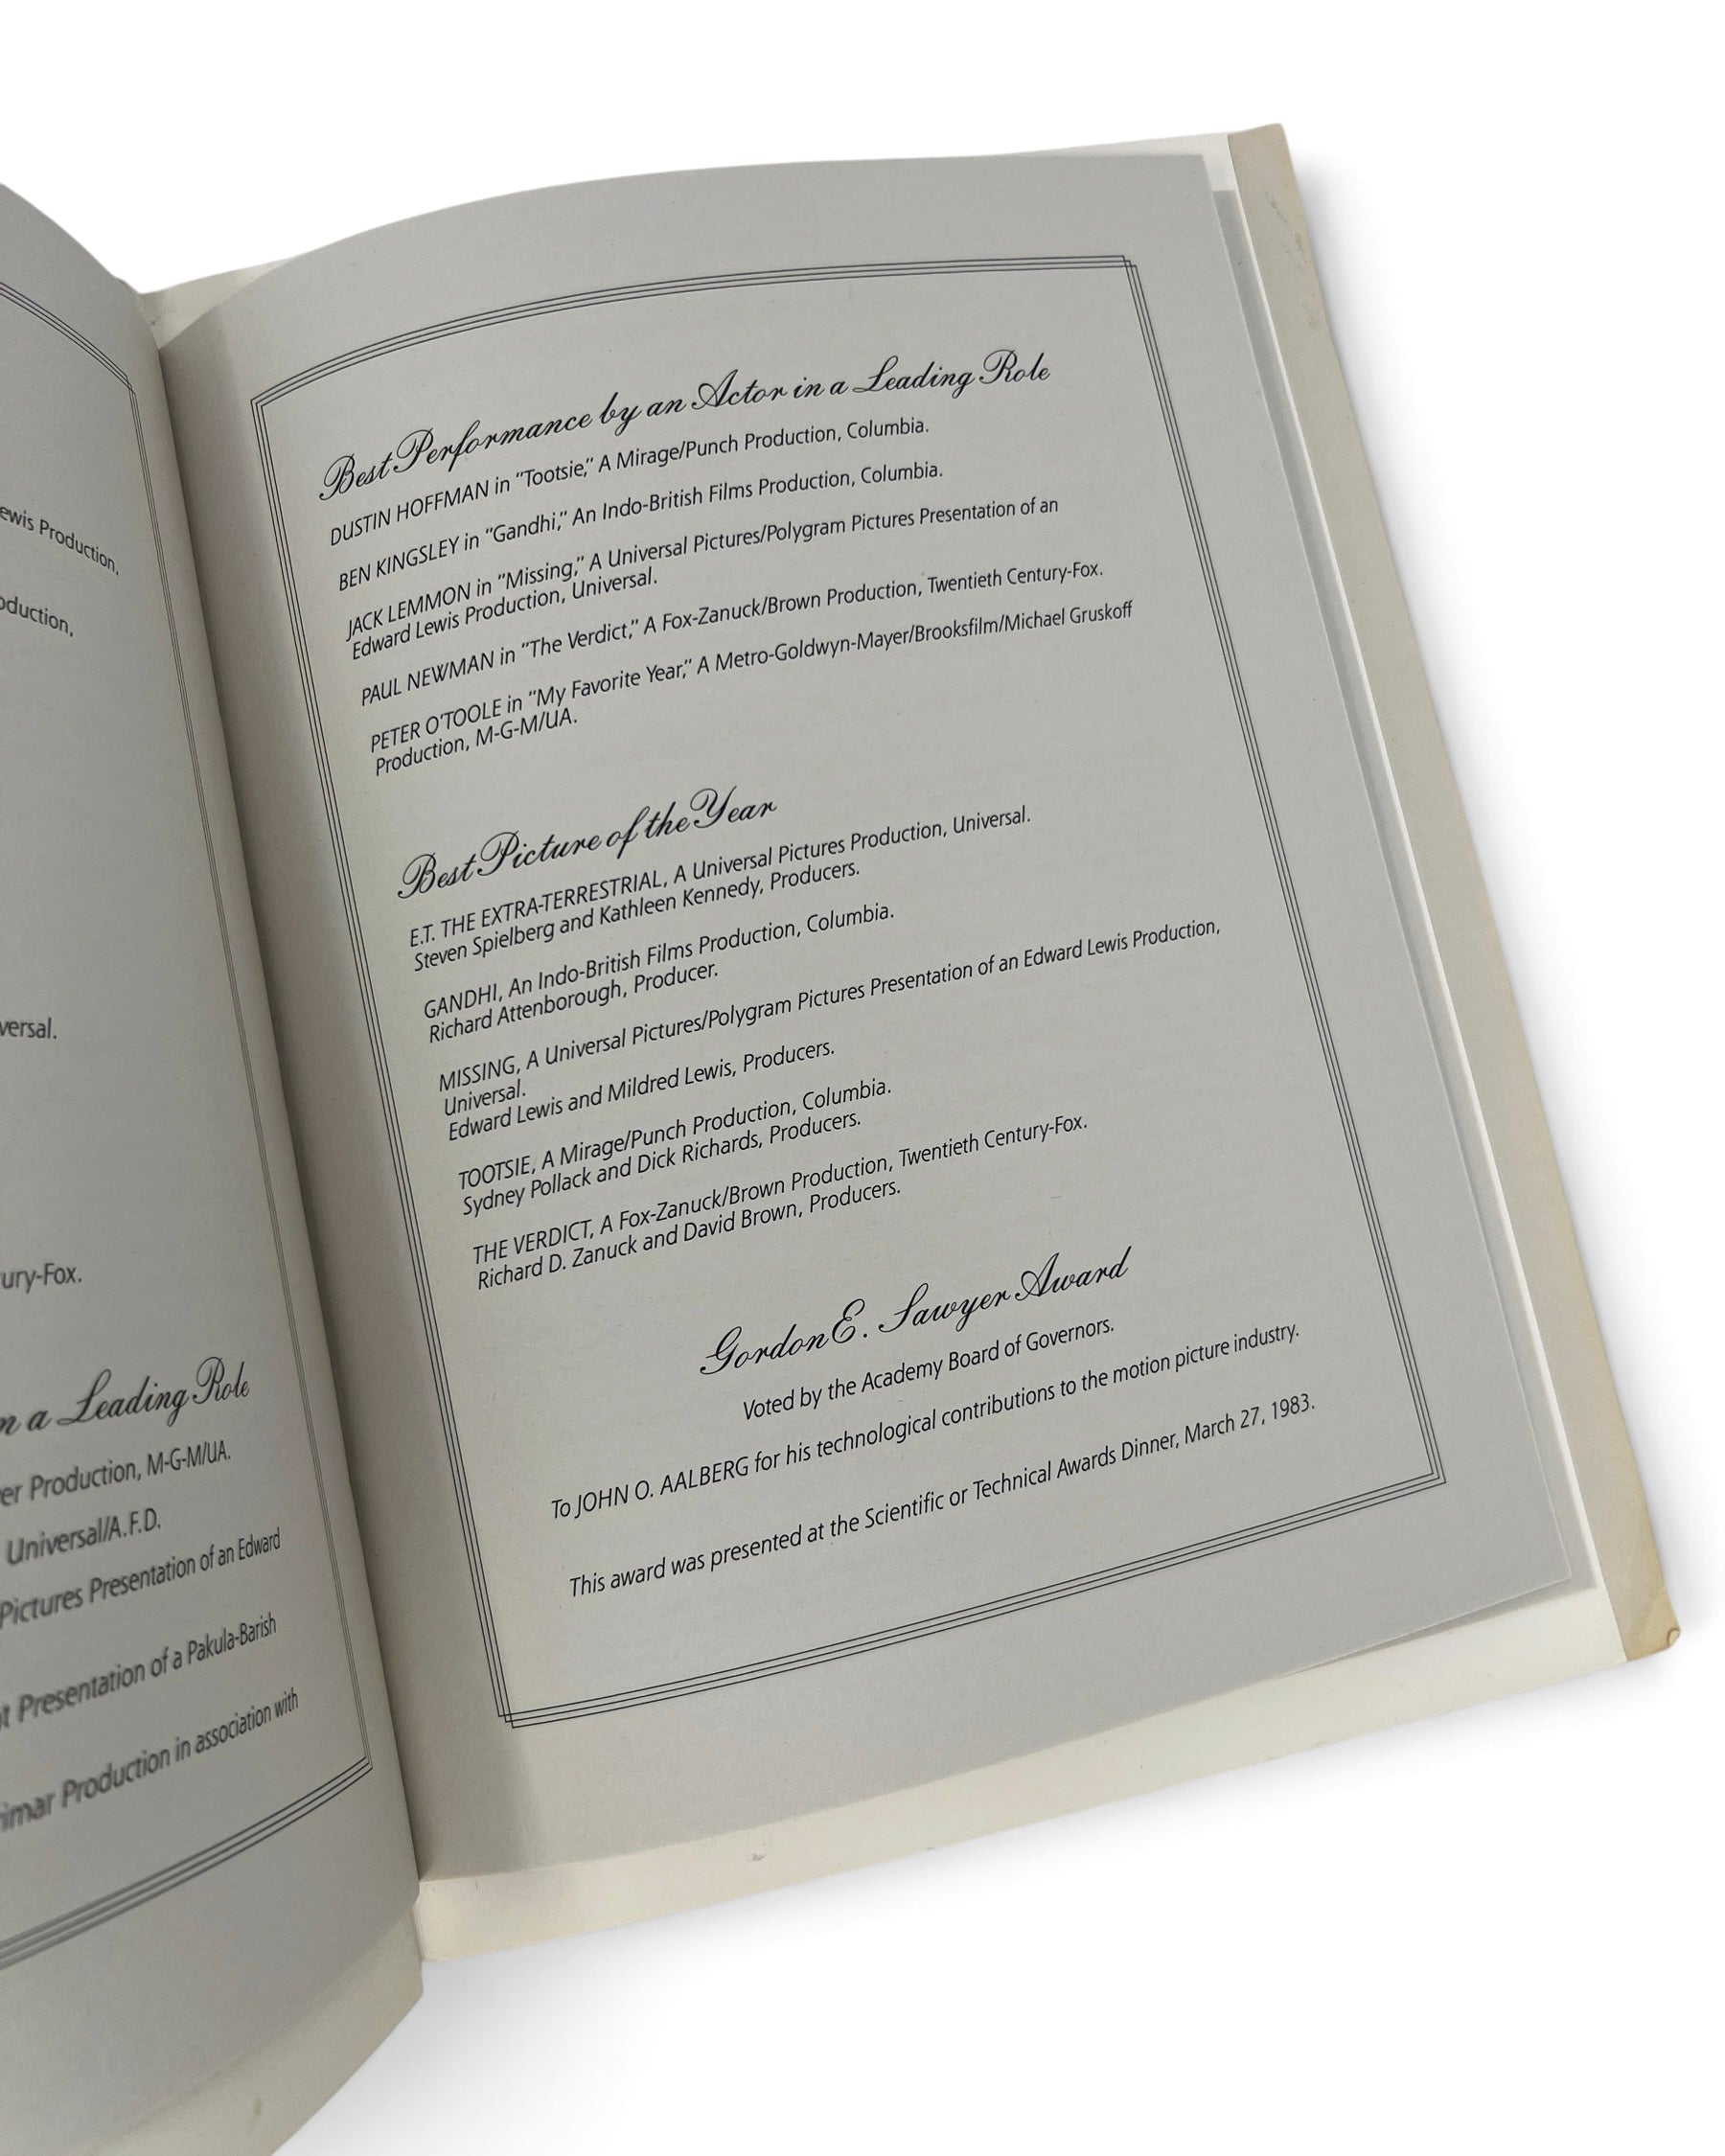 ewis Production,
oduction,
versal.
ury-Fox.
n a Leading Role
er Production, M-G-M/UA.
Universal/A.F.D.
Pictures Presentation of an Edward
Presentation of a Pakula-Barish
rimar Production in association with
Best Performance by an Actor in a Leading Role
DUSTIN HOFFMAN in "Tootsie," A Mirage/Punch Production, Columbia.
BEN KINGSLEY in "Gandhi," An Indo-British Films Production, Columbia.
JACK LEMMON in "Missing," A Universal Pictures/Polygram Pictures Presentation of an
Edward Lewis Production, Universal.
PAUL NEWMAN in "The Verdict," A Fox-Zanuck/Brown Production, Twentieth Century-Fox.
PETER O'TOOLE in "My Favorite Year," A Metro-Goldwyn-Mayer/Brooksfilm/Michael Gruskoff
Production, M-G-M/UA.
Best Picture of the Year
E.T. THE EXTRA-TERRESTRIAL, A Universal Pictures Production, Universal.
Steven Spielberg and Kathleen Kennedy, Producers.
GANDHI, An Indo-British Films Production, Columbia.
Richard Attenborough, Producer.
MISSING, A Universal Pictures/Polygram Pictures Presentation of an Edward Lewis Production,
Universal.
Edward Lewis and Mildred Lewis, Producers.
TOOTSIE, A Mirage/Punch Production, Columbia.
Sydney Pollack and Dick Richards, Producers.
THE VERDICT, A Fox-Zanuck/Brown Production, Twentieth Century-Fox.
Richard D. Zanuck and David Brown, Producers.
Gordon E. Sawyer Award
Voted by the Academy Board of Governors.
To JOHN O. AALBERG for his technological contributions to the motion picture industry.
This award was presented at the Scientific or Technical Awards Dinner, March 27, 1983.